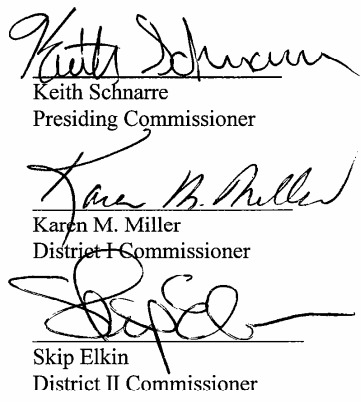 Keith Schnarre
Keith Schnarre
Presiding Commissioner
Karen M. Miller
Karen M. Miller
District I Commissioner
Skip Elkin
Skip Elkin
District II Commissioner